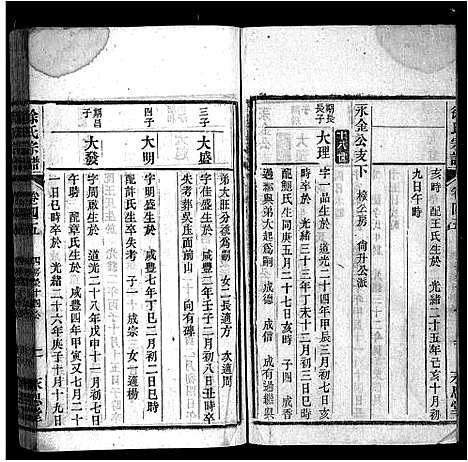 徐氏宗譜
亥時 配王氏生於 光緒二十五年己亥十一月初
九日午時
永金公支下 梭公房 尚升公派
十八世
期長長子
大理
字一品生於 道光二十四年甲辰三月初七日
時卒於 光緒三十三年丁未十二月初三日巳時
配鮑氏生同庚五月二十七日亥時 子四 成香
過繼與弟大起爲嗣 成德 成信 成有過繼與
弟大旺分後爲嗣 女二長適方 次適周
三子
大盛
字佳盛生於 咸豐三年壬子二月初八日丑時卒
失考葬吳庄面前山 向有碑
四子
大明
字明盛生於 咸豐七年丁巳二月初二日巳時
配許氏生卒失考 子一 成宗 女一適楊
期昌子
大發
字周啟生於 道光二十八年戊申十一月初七日
時卒於 光緒二十六年庚子十月十九日
配章氏生於 咸豐四年甲寅又七月二十
一日巳時卒於
徐氏宗譜
卷四五